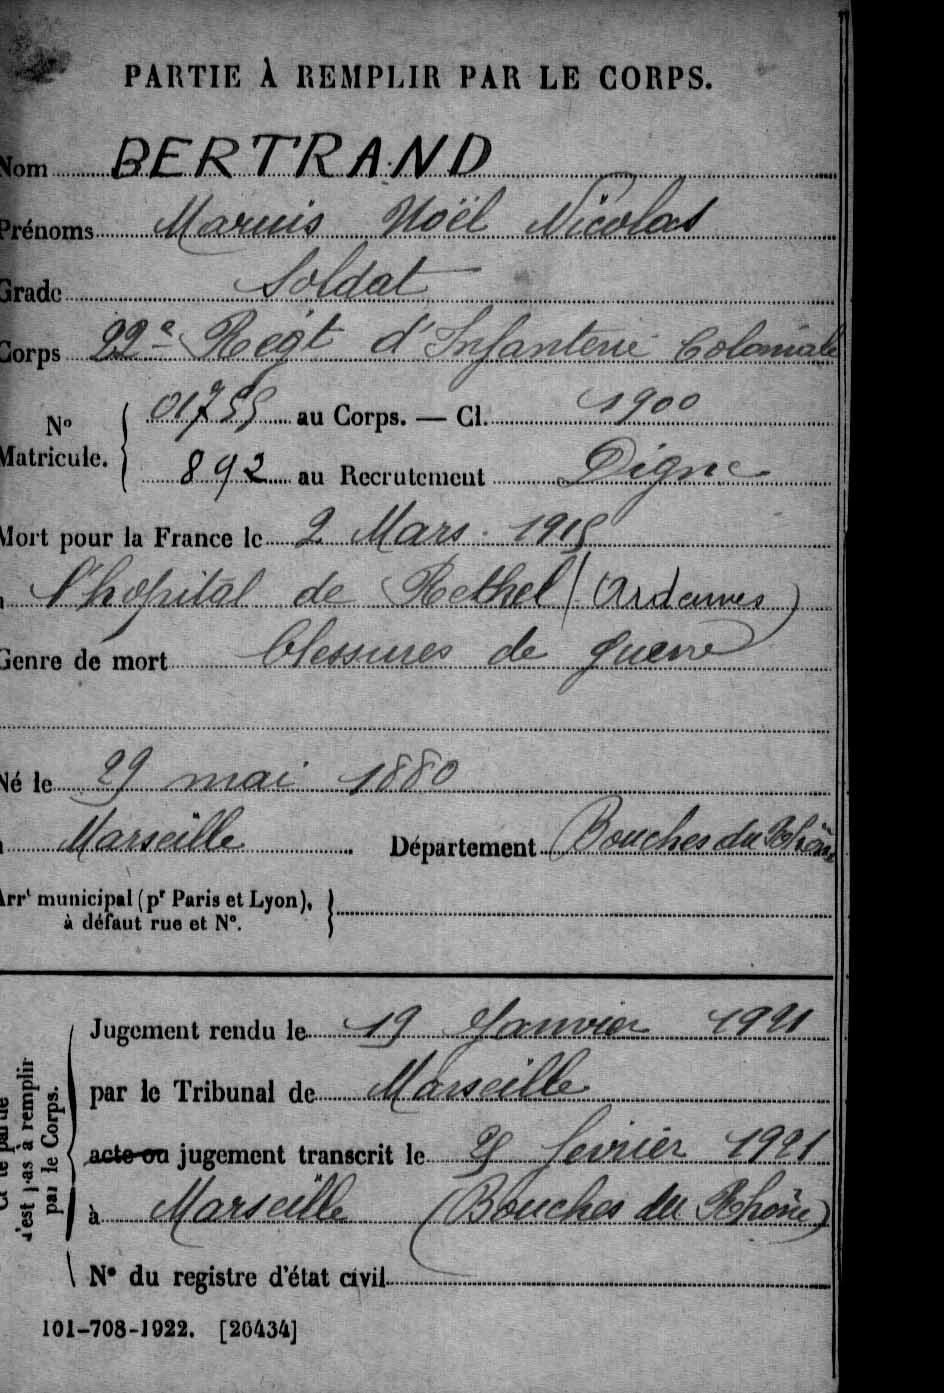 PARTIE À REMPLIR PAR LE CORPS.
Nom BERTRAND
Prénoms Marius Noël Nicolas
Grade Soldat
Corps 22e Régt d'Infanterie Coloniale
No Matricule. { 01755 au Corps. — Cl. 1900
892 au Recrutement Digne
Mort pour la France le 2 Mars 1915
à l'hôpital de Rethel (Ardennes)
Genre de mort blessures de guerre
Né le 29 mai 1880
à Marseille Département Bouches du Rhône
Arrt municipal (pr Paris et Lyon), à défaut rue et No. }
Cette partie n'est pas à remplir par le Corps.
Jugement rendu le 19 Janvier 1921
par le Tribunal de Marseille
acte ou jugement transcrit le février 1921
à Marseille (Bouches du Rhône)
No du registre d'état civil
101-708-1922. [26434]